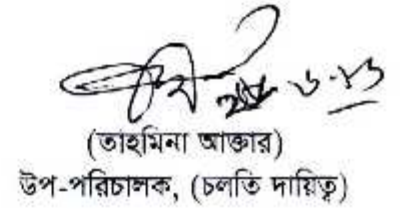 (তাহমিনা আক্তার)
উপ-পরিচালক, (চলতি দায়িত্ব)